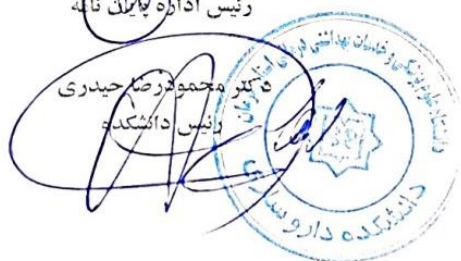 رئیس اداره پایان نامه
دکتر محمودرضا حیدری
رئیس دانشکده
دانشگاه علوم پزشکی و خدمات بهداشتی درمانی استان کرمان
دانشکده داروسازی